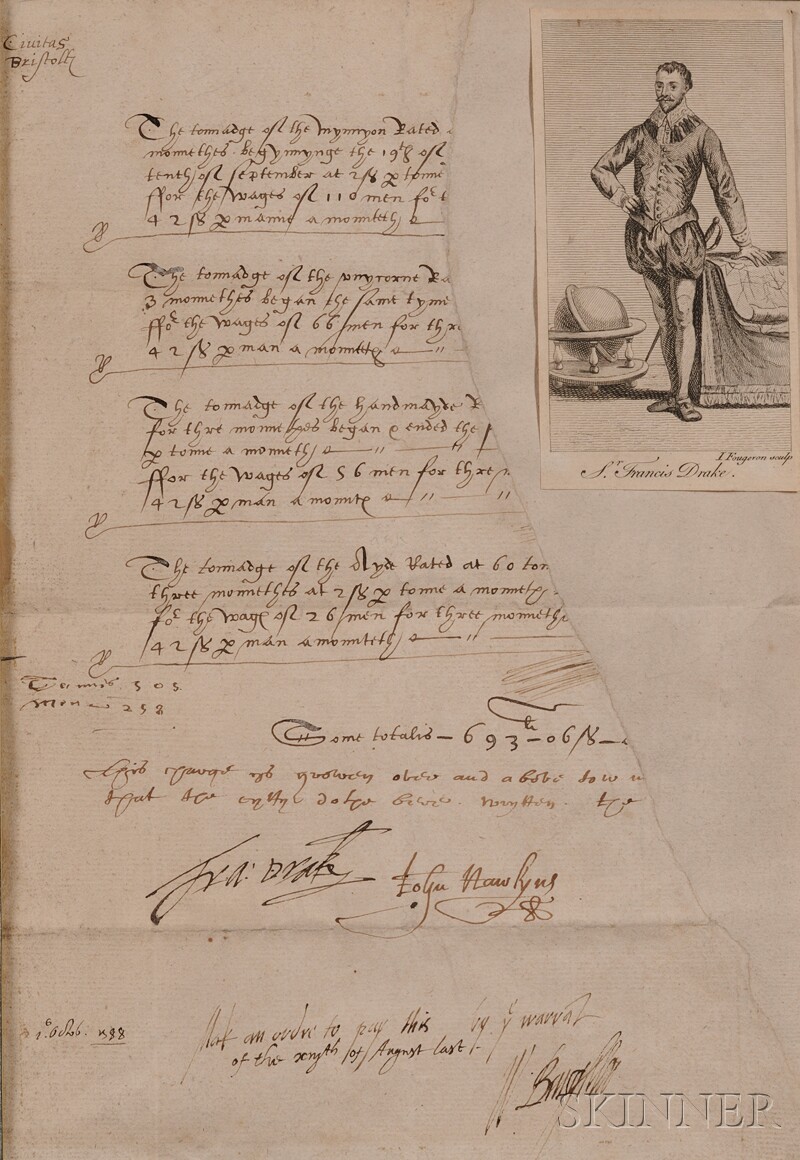 Civitas
Bristoll
The tonnadge off the mynyon Rated
monnethes begynnynge the 19th off
tenth off september at 2 ss p tonne
ffor the wages off 110 men for t
4 2 ss p manne a monneth
The tonnadge off the unycorne Ra
3 monnethes began the same tyme
ffor the wages off 66 men for thr
4 2 ss p man a monneth
The tonnadge off the handmayde R
for thre monnethes began & ended the
p tonne a monneth
ffor the wages off 56 men for thre
4 2 ss p man a monneth
The tonnadge off the Ayde Rated at 60 ton
three monnethes at 2 ss p tonne a monneth
for the wages off 26 men for three monneth
4 2 ss p man a monneth
Tonnes 505
Menne 258
Some totalis – 693 – 06 ss –
this charge ys growen over and above
that the cyttye dothe bere. wrytten. the
Fra: Drake John Hawkyns
1o Octob. 1588
Mak an ordre to pay this by ye warrat
of the xiiijth of August last
W. Burghley
I Fougeron sculp
Sr. Francis Drake.
SKINNER